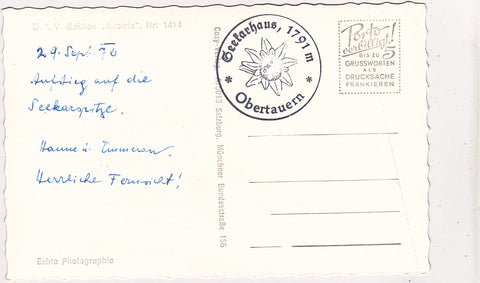 Ö.A.V. Sektion „Austria", Nr. 1414
29. Sept. 76
Aufstieg auf die
Seekarspitze.
Hanne u. Emmeran.
Herrliche Fernsicht!
Echte Photographie
Cosy-Verlag 5013 Salzburg, Münchner Bundesstraße 156
Seekarhaus, 1791 m
* Obertauern *
Porto-
verbilligt!
BIS ZU 5
GRUSSWORTEN
ALS
DRUCKSACHE
FRANKIEREN